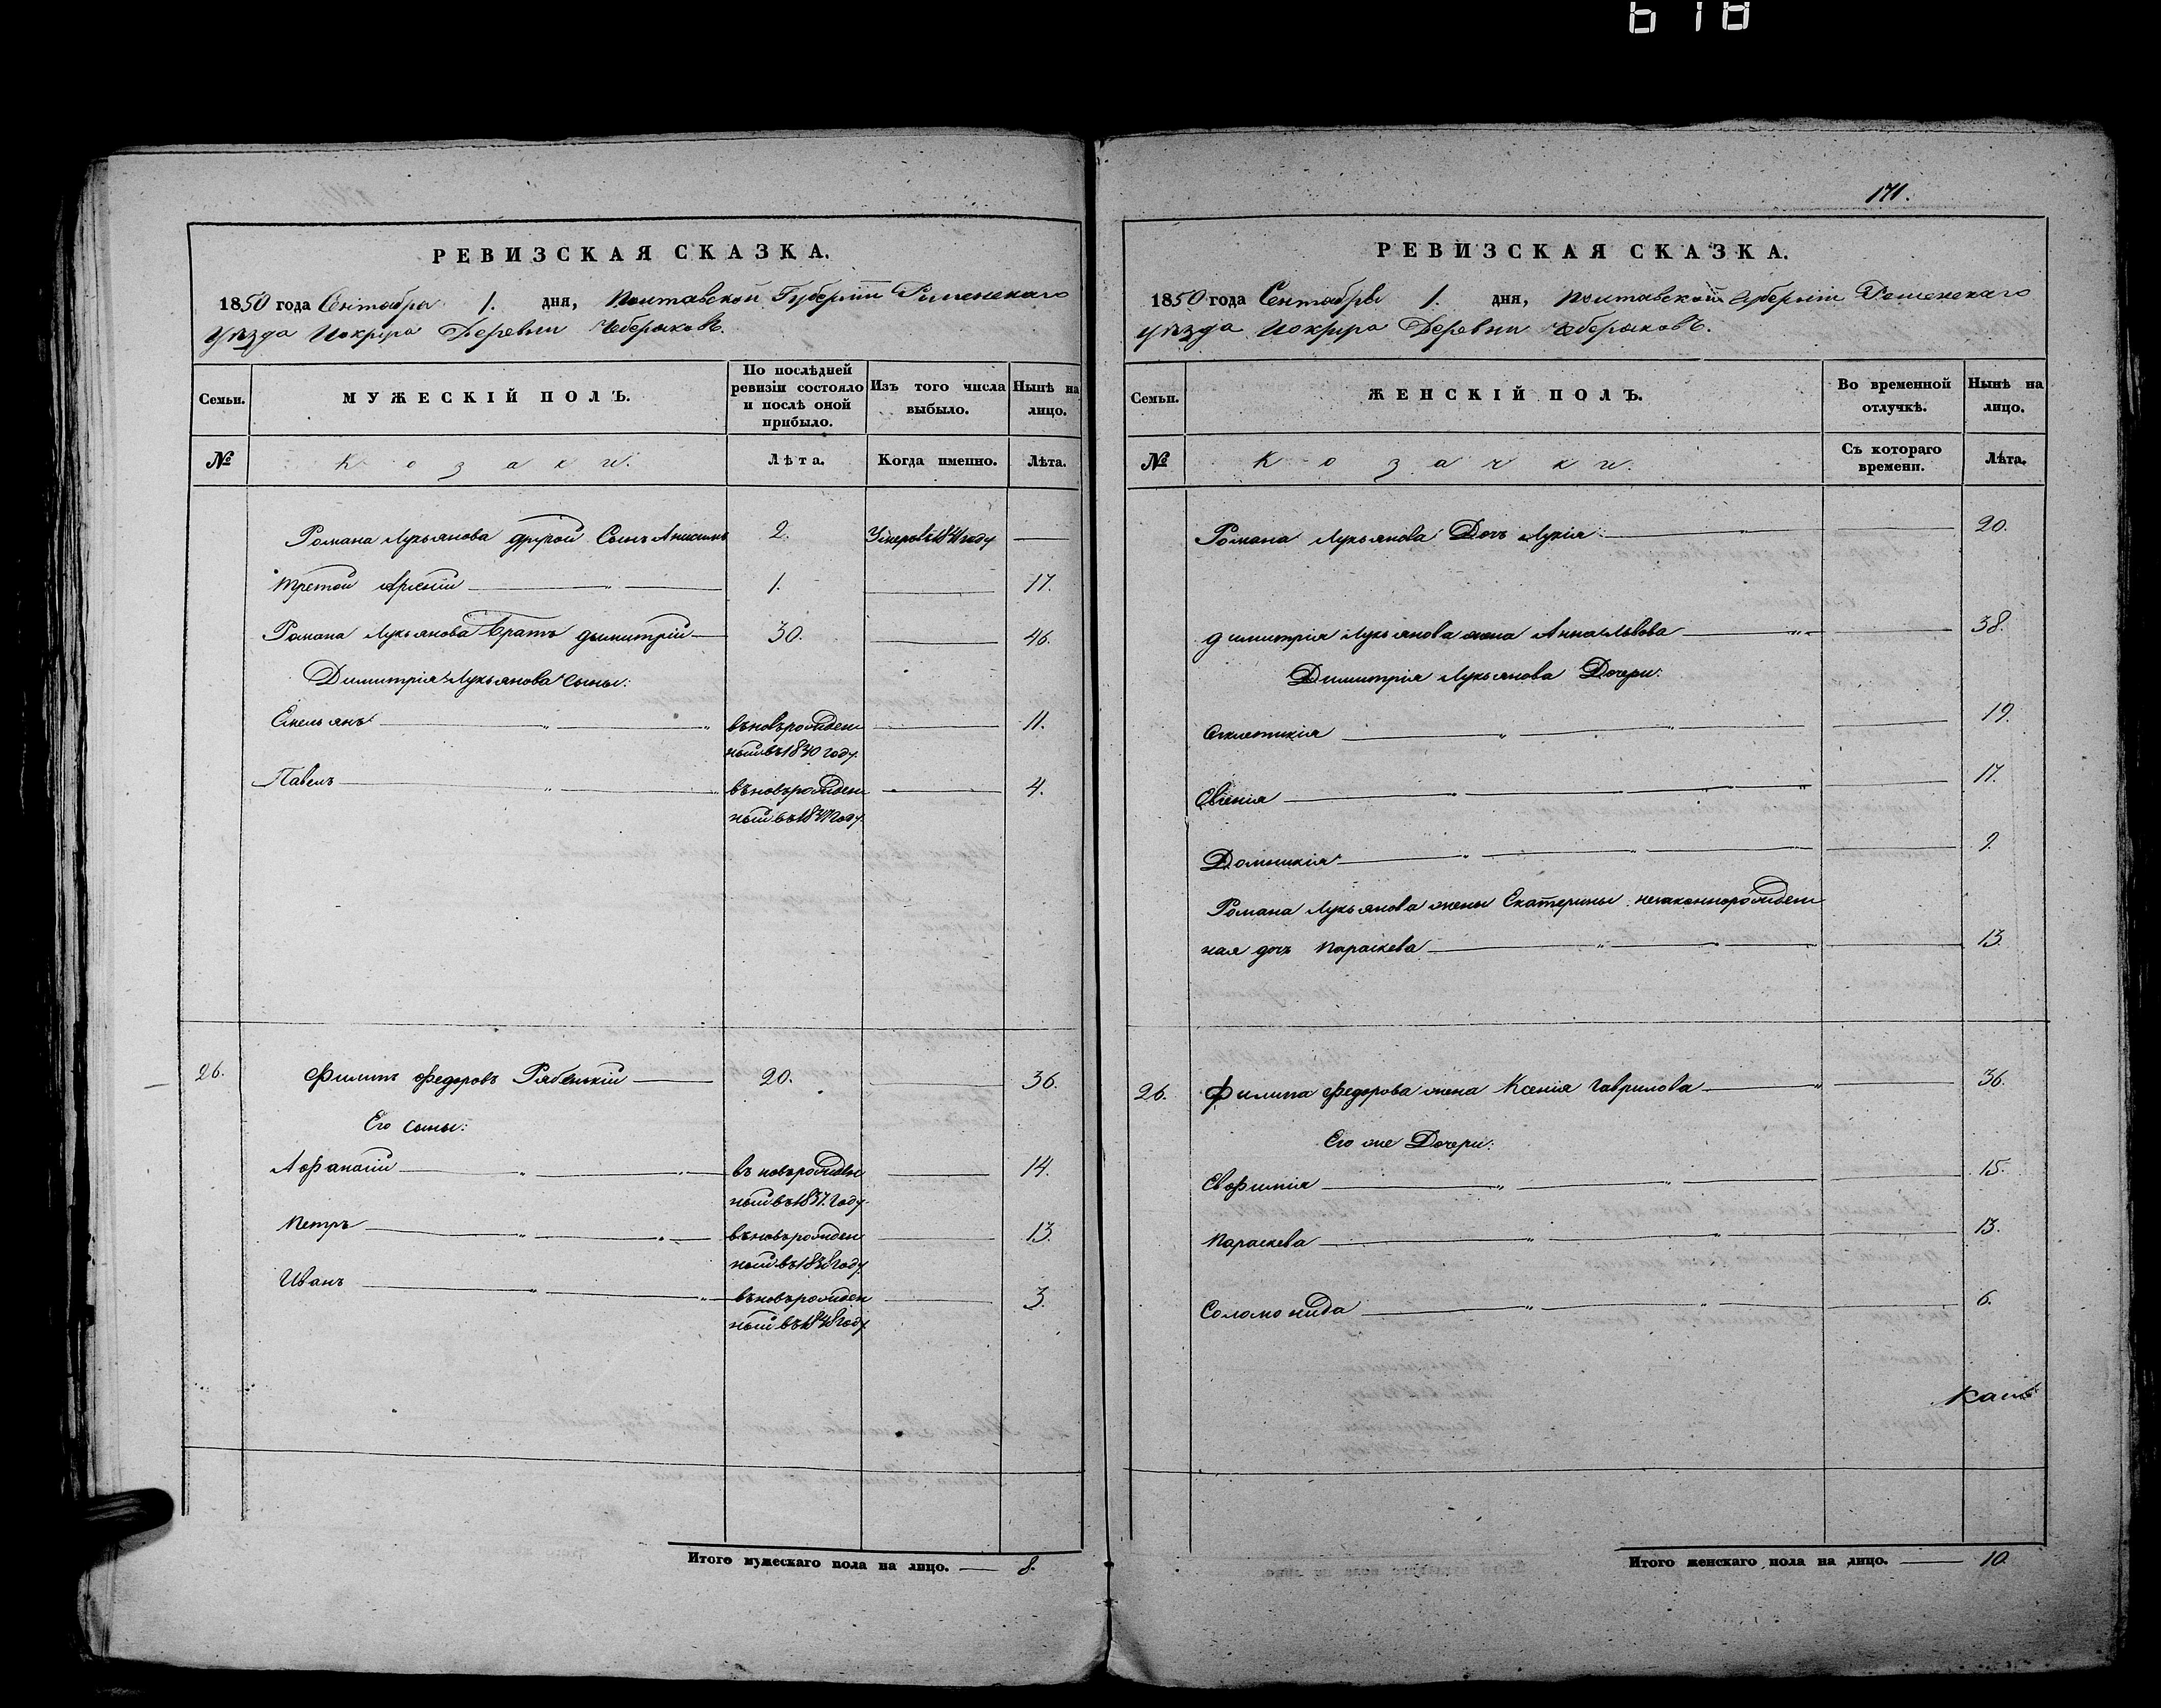 618
РЕВИЗСКАЯ СКАЗКА.
1850 года Сентября 1. дня, Полтавской Губерніи Роменскаго
Уѣзда Деревни
Семьи.
МУЖЕСКІЙ ПОЛЪ.
По послѣдней ревизіи состояло и послѣ оной прибыло.
Изъ того числа выбыло.
Нынѣ на лицо.
№
Козаки.
Лѣта.
Когда именно.
Лѣта.
Романа Лукьянова другой Сынъ Анисимъ 2. —
Третой Арсеній — 1. — 17.
Романа Лукьянова братъ Димитрій — 30. — 46.
Димитрія Лукьянова сыны:
Емельянъ — въновърожден — 11.
ный въ 1840 году.
Павелъ — въновърожден — 4.
ный въ 1847 году.
26. Филипъ Федоровъ Рябенкій — 20. — 36.
Его сыны:
Афанасій — въновърожден — 14.
ный въ 1837. году.
Петръ — въновърожден — 13.
ный въ 1838 году.
Иванъ — въновърожден — 3.
ный въ 1848 году.
Итого мужескаго пола на лицо. — 8.
171.
РЕВИЗСКАЯ СКАЗКА.
1850 года Сентября 1. дня, Полтавской Губерніи Роменскаго
уѣзда Деревни
Семьи.
ЖЕНСКІЙ ПОЛЪ.
Во временной отлучкѣ.
Нынѣ на лицо.
№
Козачки.
Съ котораго времени.
Лѣта.
Романа Лукьянова Дочь Лукія — 20.
Димитрія Лукьянова жена Анна Львова — 38.
Димитрія Лукьянова Дочери:
— 19.
Евгенія — 17.
Домникія — 9.
Романа Лукьянова жены Екатерины незаконнорожден
ная дочь Параскева — 13.
26. Филипа Федорова жена Ксенія Гаврилова — 36.
Его же Дочери:
Евфимія — 15.
Параскева — 13.
Соломонида — 6.
Итого женскаго пола на лицо. — 10.